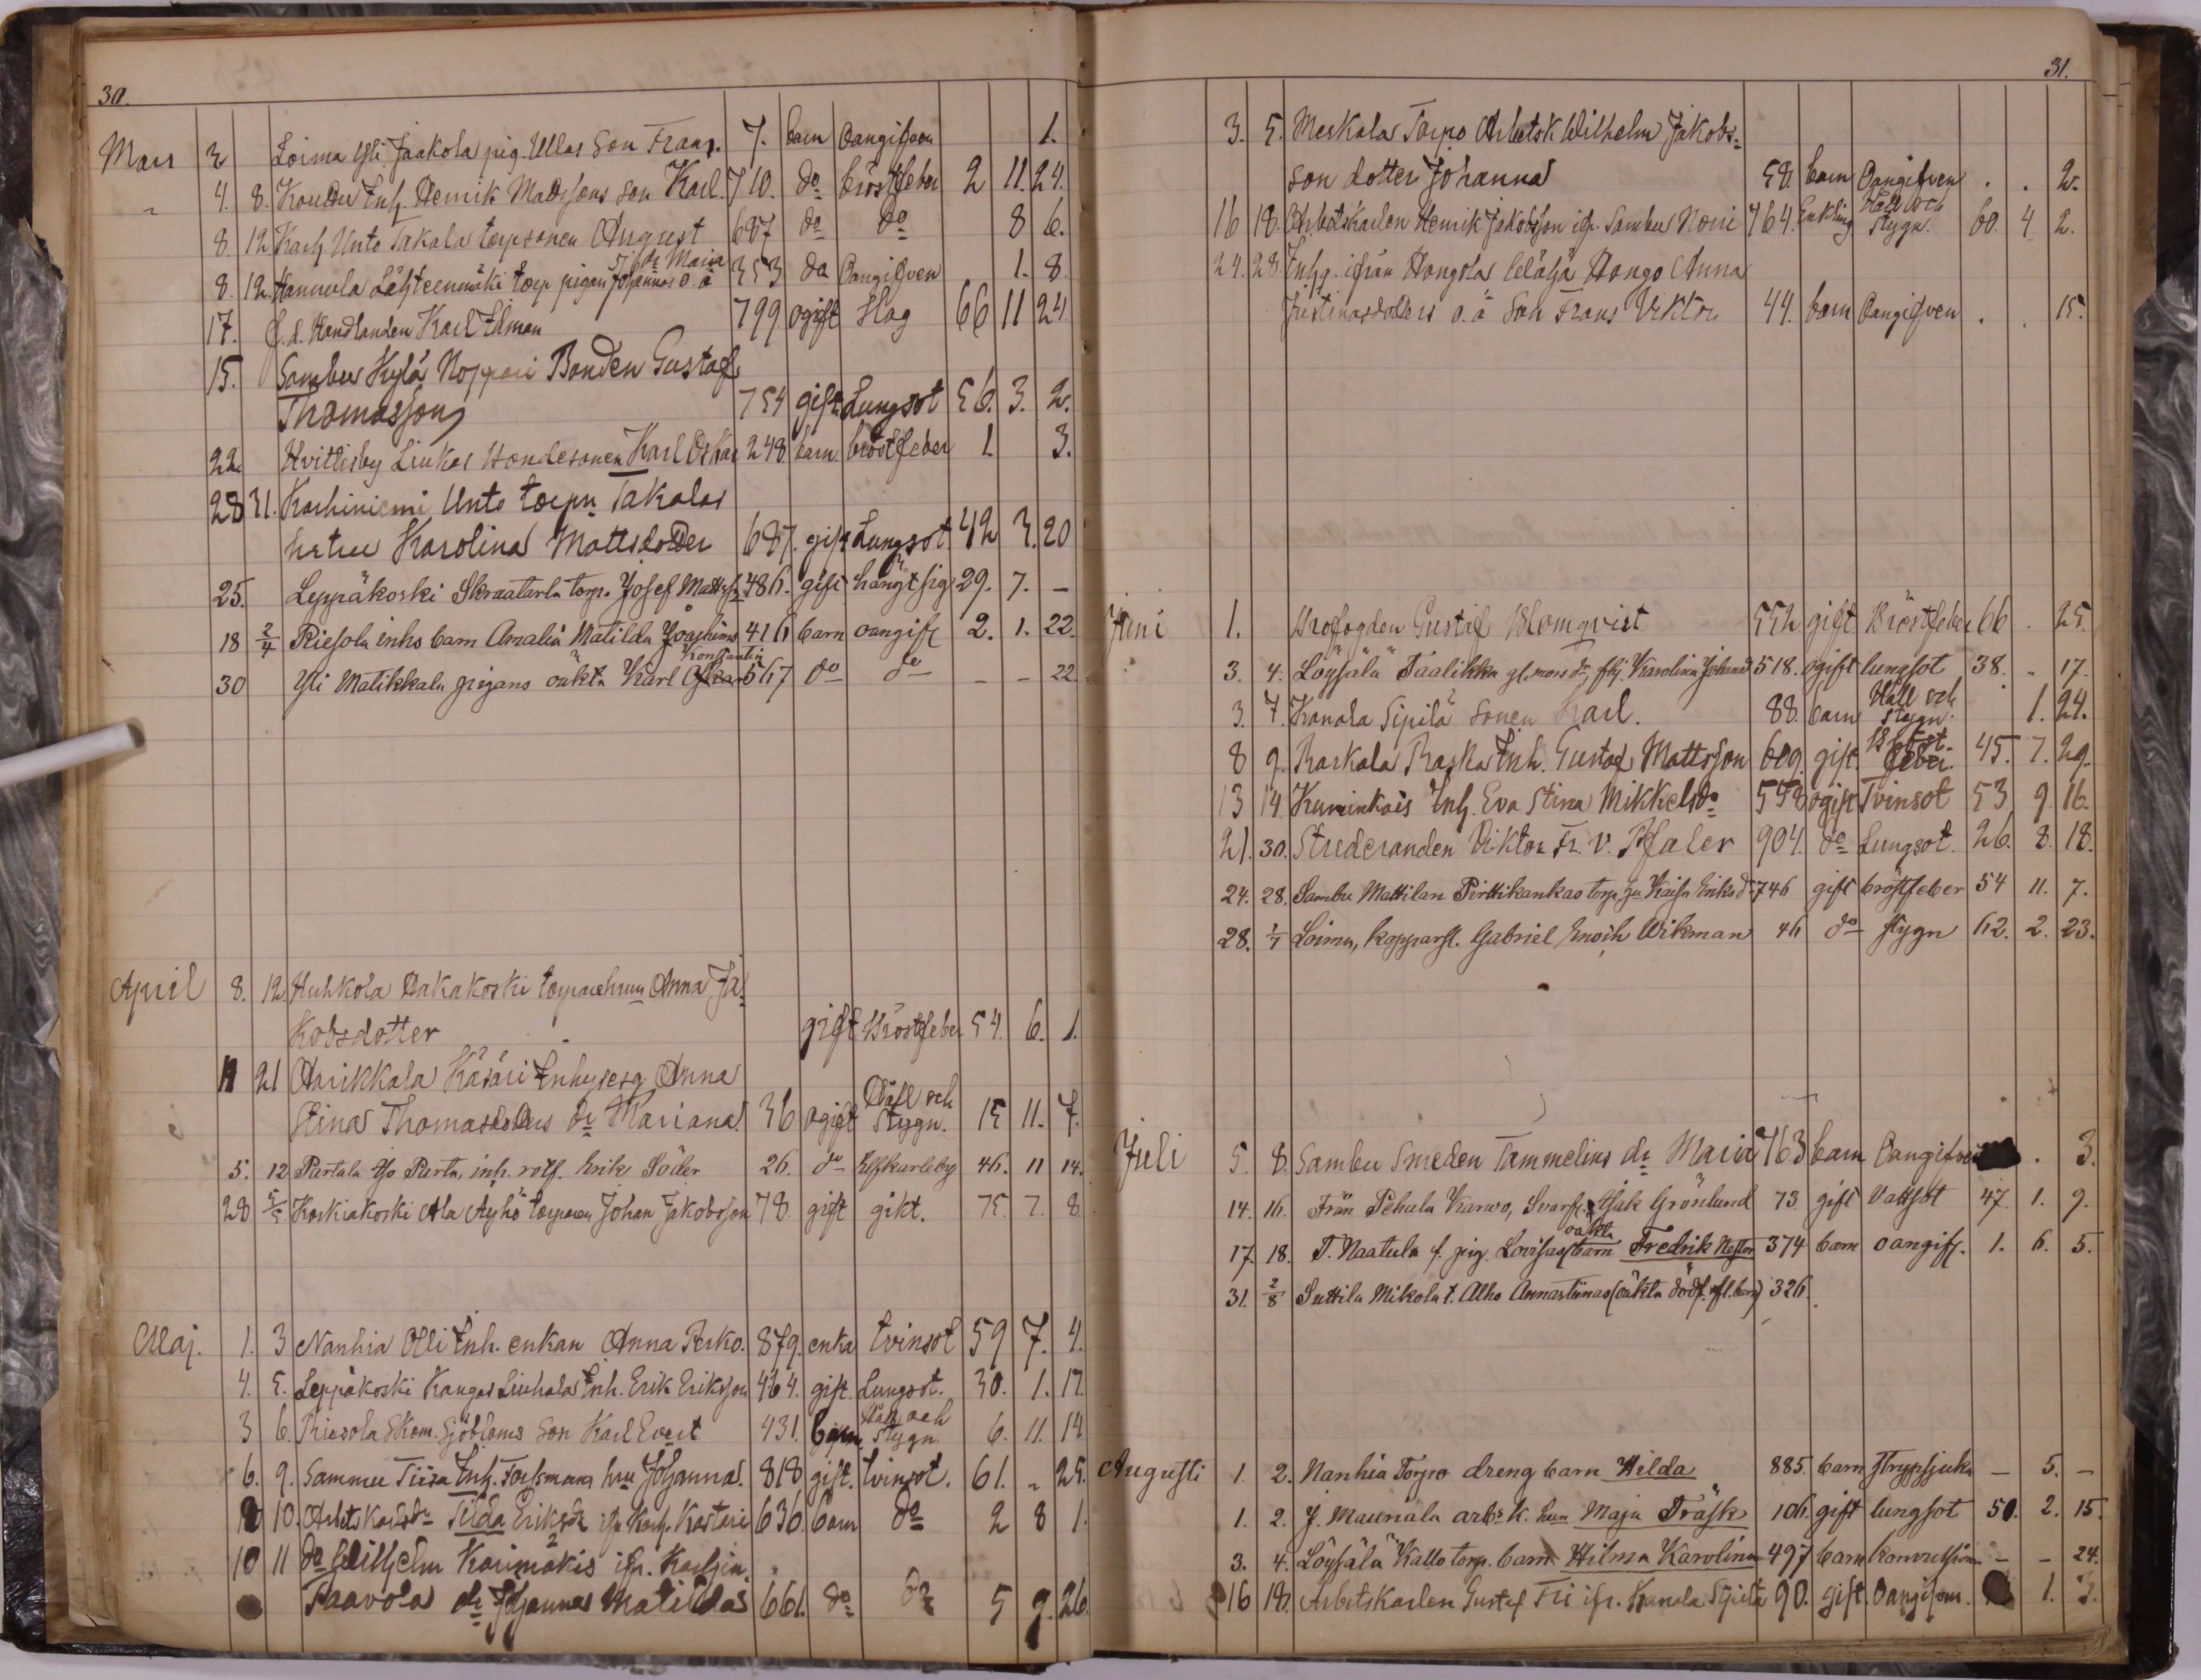 30.
Mars 2 Loima Yli Jaakola pig. Ullas Son Frans. 7. barn Oangifven 1.
" 4. 8. Inh. Henrik Mattssons son Karl. 710. do bröstfeber 2 11. 24.
8. 12. Karh. Unto Takala torpsonen August 687 do do 8 6.
Maria
8. 12. Hannula Lähteenmäki torp pigan Johannas o. ä 353 do Oangifven 1. 8.
17. f. d. Handlanden Karl Ekman 799 ogift Slag 66 11 24
15. Sambu Kylä Noppari Bonden Gustaf
Thomasson 754 gift Lungsot 56. 3. 2.
22 Hvittisby Liukas bondesonen Karl Oskar 248 barn. bröstfeber 1. 3.
28 31. Karhiniemi Unto torpn Takalas
hustru Karolina Mattsdotter 687. gift Lungsot 42 3. 20
25. Leppäkoski Skraatarla torp. Josef Mattss 486. gift hängt sig 29. 7. –
18 2/4 Riesola inhs barn Amalia Matilda Joachims 416 barn oangif 2. 1. 22.
Konstantin
30 Yli Matikkala pigans oäkta Karl Oskar 567 do do – – 22
April 8. 12. Huhkola Hakakoski torparehun Anna Ja-
kobsdotter gift Bröstfeber 54. 6. 1.
11 21 Anikkala Käsäri Inhysesg Anna
Håll och
Stina Thomasdotters dr Mariana. 36 ogift Stygn. 15 11. 7.
5. 12 Partala Yo Perta, inh. rotf. Erik Söder 26. do Elfkarleby 46. 11 14.
28 5/5 Koskiakoski Ala Äyhö torparen Johan Jakobsson 78. gift gikt. 75. 7. 8
Maj. 1. 3 Nanhia Olli Inh. enkan Anna Perko. 879. enka tvinsot 59 7. 4.
4. 5. Leppäkoski Kangas Liuhala Inh. Erik Eriksson 464. gift. Lungsot. 30. 1. 17
Håll och
3 6. Riesola Skom. Sjöbloms Son Karl Evert 431. barn Stygn 6. 11. 14
6. 9. Sammu Tiira Inh. Forssmans hru Johanna. 818 gift. tvinsot. 61. " 25.
10. Arbets Karls dr Tilda Eriksdr ifr. Karh. Kastari 636. barn do 2 8 1.
10 11 do Wilhelm Karimäkis ifr. Karhia.
Paavola dr Johanna Matildas 661. do do 5 9. 26.
31.
3. 5. Meskala Torpo Arbetsk Wilhelm Jakobs-
son dotter Johanna 58. barn Oangifven . . 2.
Håll och
16 18. Arbetskarlen Henrik Jakobsson ifr. Sambu Noiri 764. Enkling Stygn. 60. 4 2.
24. 28. Inhg. ifrån Hongola Hongo Anna
Justinasdotters o. ä Son Frans Viktor 44. barn Oangifven . . 15.
Juni 1. Brofogden Gustaf Blomqvist 552 gift Bröstfeber 66 . 25.
3. 4. Löysälä Taalikka gl. mors dr, flj. Karolina Johansd 518. ogift lungsot 38. " 17.
Håll och
3. 7. Kanala Sipilä Sonen Karl. 88. barn Stygn. 1. 24.
Bröst-
8 9. Raskala Raska Inh. Gustaf Mattsson 609. gift. feber. 45. 7. 29.
13 14. Kuninkais Inh. Eva Stina Mikkelsdr 558 ogift Tvinsot 53 9 16
21. 30. Studeranden Viktor Fr. v. Pfaler 904. do Lungsot. 26. 8. 18.
24. 28. Sambu Mattilan Pirttikankas torp. Kaisa Eriks dr 746 gift bröstfeber 54 11. 7.
28. 1/7 Loima, kopparsl. Gabriel Enoch Wikman 46 do stygn 62. 2. 23.
Juli 5. 8. Sambu Smeden Tammelins dr Maria 763 barn Oangifven . 3.
14. 16. Från Pehula Karwo, Svarfv. Isak Grönlund 73 gift Vattsot 47. 1. 9.
oäkta
17. 18. P. Naatula f. pig. Lovisas barn Fredrik Nestor 374 barn oangif. 1. 6. 5.
31. 2/8 Suttila Mikola t. Alho Annastinas (oäkta dödf. fl. barn) 326.
Augusti 1. 2. Nanhia Torpo dreng barn Hilda 885. barn Strypsjuka – 5. –
1. 2. J. Maunala arb. k. hun Maja Träsk 106. gift lungsot 50. 2. 15.
3. 4. Löysälä Kallo torp. barn Hilma Karolina 497 barn konvulsion – – 24.
16 18. Arbetskarlen Gustaf Fri ifr. Kanala Sipilä 90. gift. Oangifven. 1. 3.